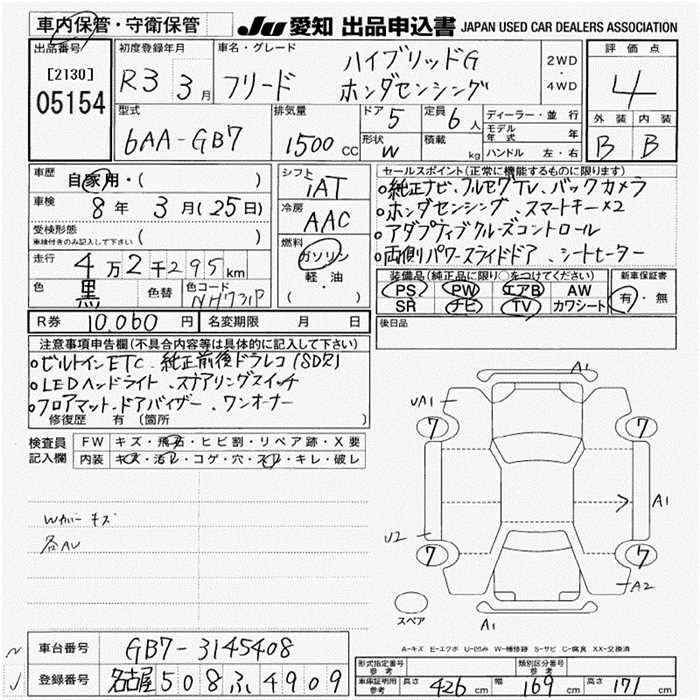 車内保管・守衛保管 JU 愛知 出品申込書 JAPAN USED CAR DEALERS ASSOCIATION
出品番号 初度登録年月 車名・グレード 評価点
[2130] R3 3月 フリード ハイブリッドG 2WD
05154 ホンダセンシング ・4WD 4
型式 排気量 ドア 5 定員 6人 ディーラー・並行 外装 内装
6AA-GB7 1500cc 形状 W 積載 kg モデル年式 年 B B
ハンドル 左・右
車歴 自家用・( ) シフト セールスポイント(正常に機能するものに限ります)
車検 8年 3月(25日) iAT 純正ナビ、フルセグTV、バックカメラ
冷房 ホンダセンシング、スマートキー×2
受検形態 AAC アダプティブクルーズコントロール
車検付きのみ記入して下さい ( ) 両側パワースライドドア、シートヒーター
走行 4万2千295km 燃料 ガソリン 装備品(純正品に限り○をつけてください) 新車保証書
色 黒 色替 色コード NH731P 軽・油 PS PW エアB AW 有・無
( ) SR ナビ TV カワシート
R券 10,060円 名変期限 月 日 後日品
注意事項申告欄(不具合内容等は具体的に記入して下さい)
ビルトインETC、純正前後ドラレコ(SD欠)
LEDヘッドライト、ステアリングスイッチ
フロアマット、ドアバイザー、ワンオーナー
修復歴 有(箇所 )
検査員 FW キズ・飛石・ヒビ割・リペア跡・X要
記入欄 内装 キズ・汚レ・コゲ・穴・スレ・キレ・破レ
A1
UA1
7 7
A1
Wカバーキズ
各AU
U2
7 7
A2
スペア A1
A-キズ E-エクボ U-凹み W-補修跡 S-サビ C-腐食 XX-交換済
車台番号 GB7-3145408 形式指定番号 参考 類別区分番号 参考
登録番号 名古屋 508 ふ 4909 車庫証明用 参考 長さ 426cm 幅 169cm 高さ 171cm